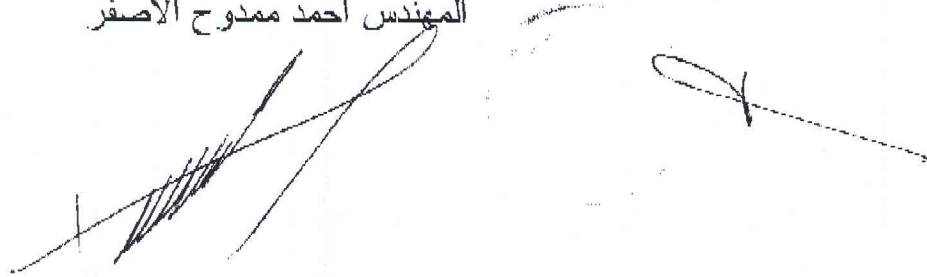 المهندس احمد ممدوح الاصفر